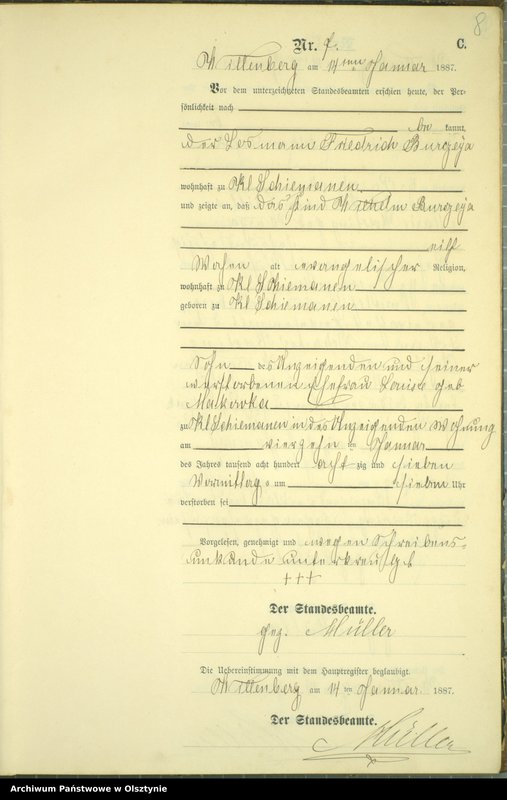 8
Nr. 7. C.
Wittenberg am 14ten Januar 1887.
Vor dem unterzeichneten Standesbeamten erschien heute, der Per-
sönlichkeit nach
be kannt,
der Losmann Friedrich Burczeya
wohnhaft zu Kl Schiemanen
und zeigte an, daß das Kind Wilhelm Burczeya
eilf
Wochen alt evangelischer Religion,
wohnhaft zu Kl Schiemanen
geboren zu Kl Schiemanen
Sohn des Anzeigenden und seiner
verstorbenen Ehefrau Louise geb
Makowka
zu Kl Schiemanen in des Anzeigenden Wohnung
am vierzehn ten Januar
des Jahres tausend acht hundert acht zig und sieben
Vormittag s um sieben Uhr
verstorben sei
Vorgelesen, genehmigt und wegen Schreibens-
unkunde unterkreuzt
+++
Der Standesbeamte.
gez. Müller
Die Uebereinstimmung mit dem Hauptregister beglaubigt.
Wittenberg am 14 ten Januar 1887.
Der Standesbeamte.
Müller
Archiwum Państwowe w Olsztynie